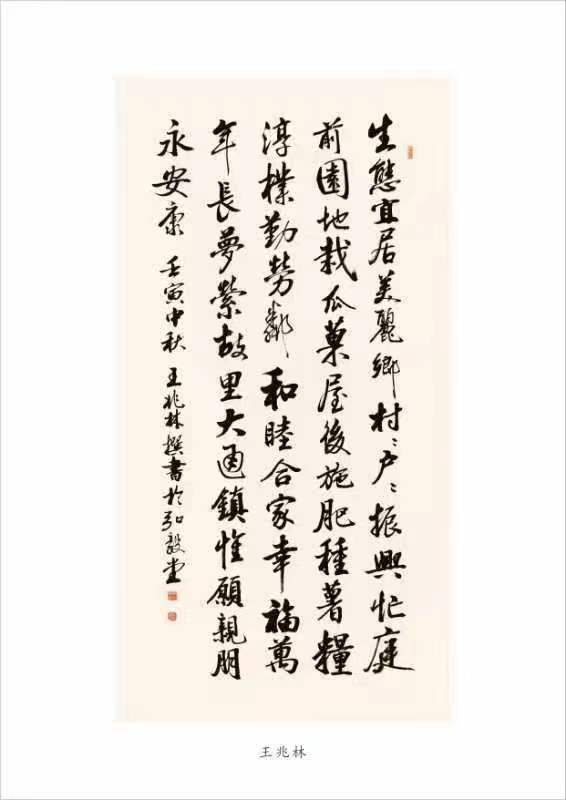 生態宜居美麗鄉村〻户〻振興忙庭
前園地栽瓜菓屋後施肥種薯糧
淳樸勤勞鄰和睦合家幸福萬
年長夢縈故里大通鎮惟願親朋
永安康 壬寅中秋 王兆林撰書於弘毅堂
王兆林